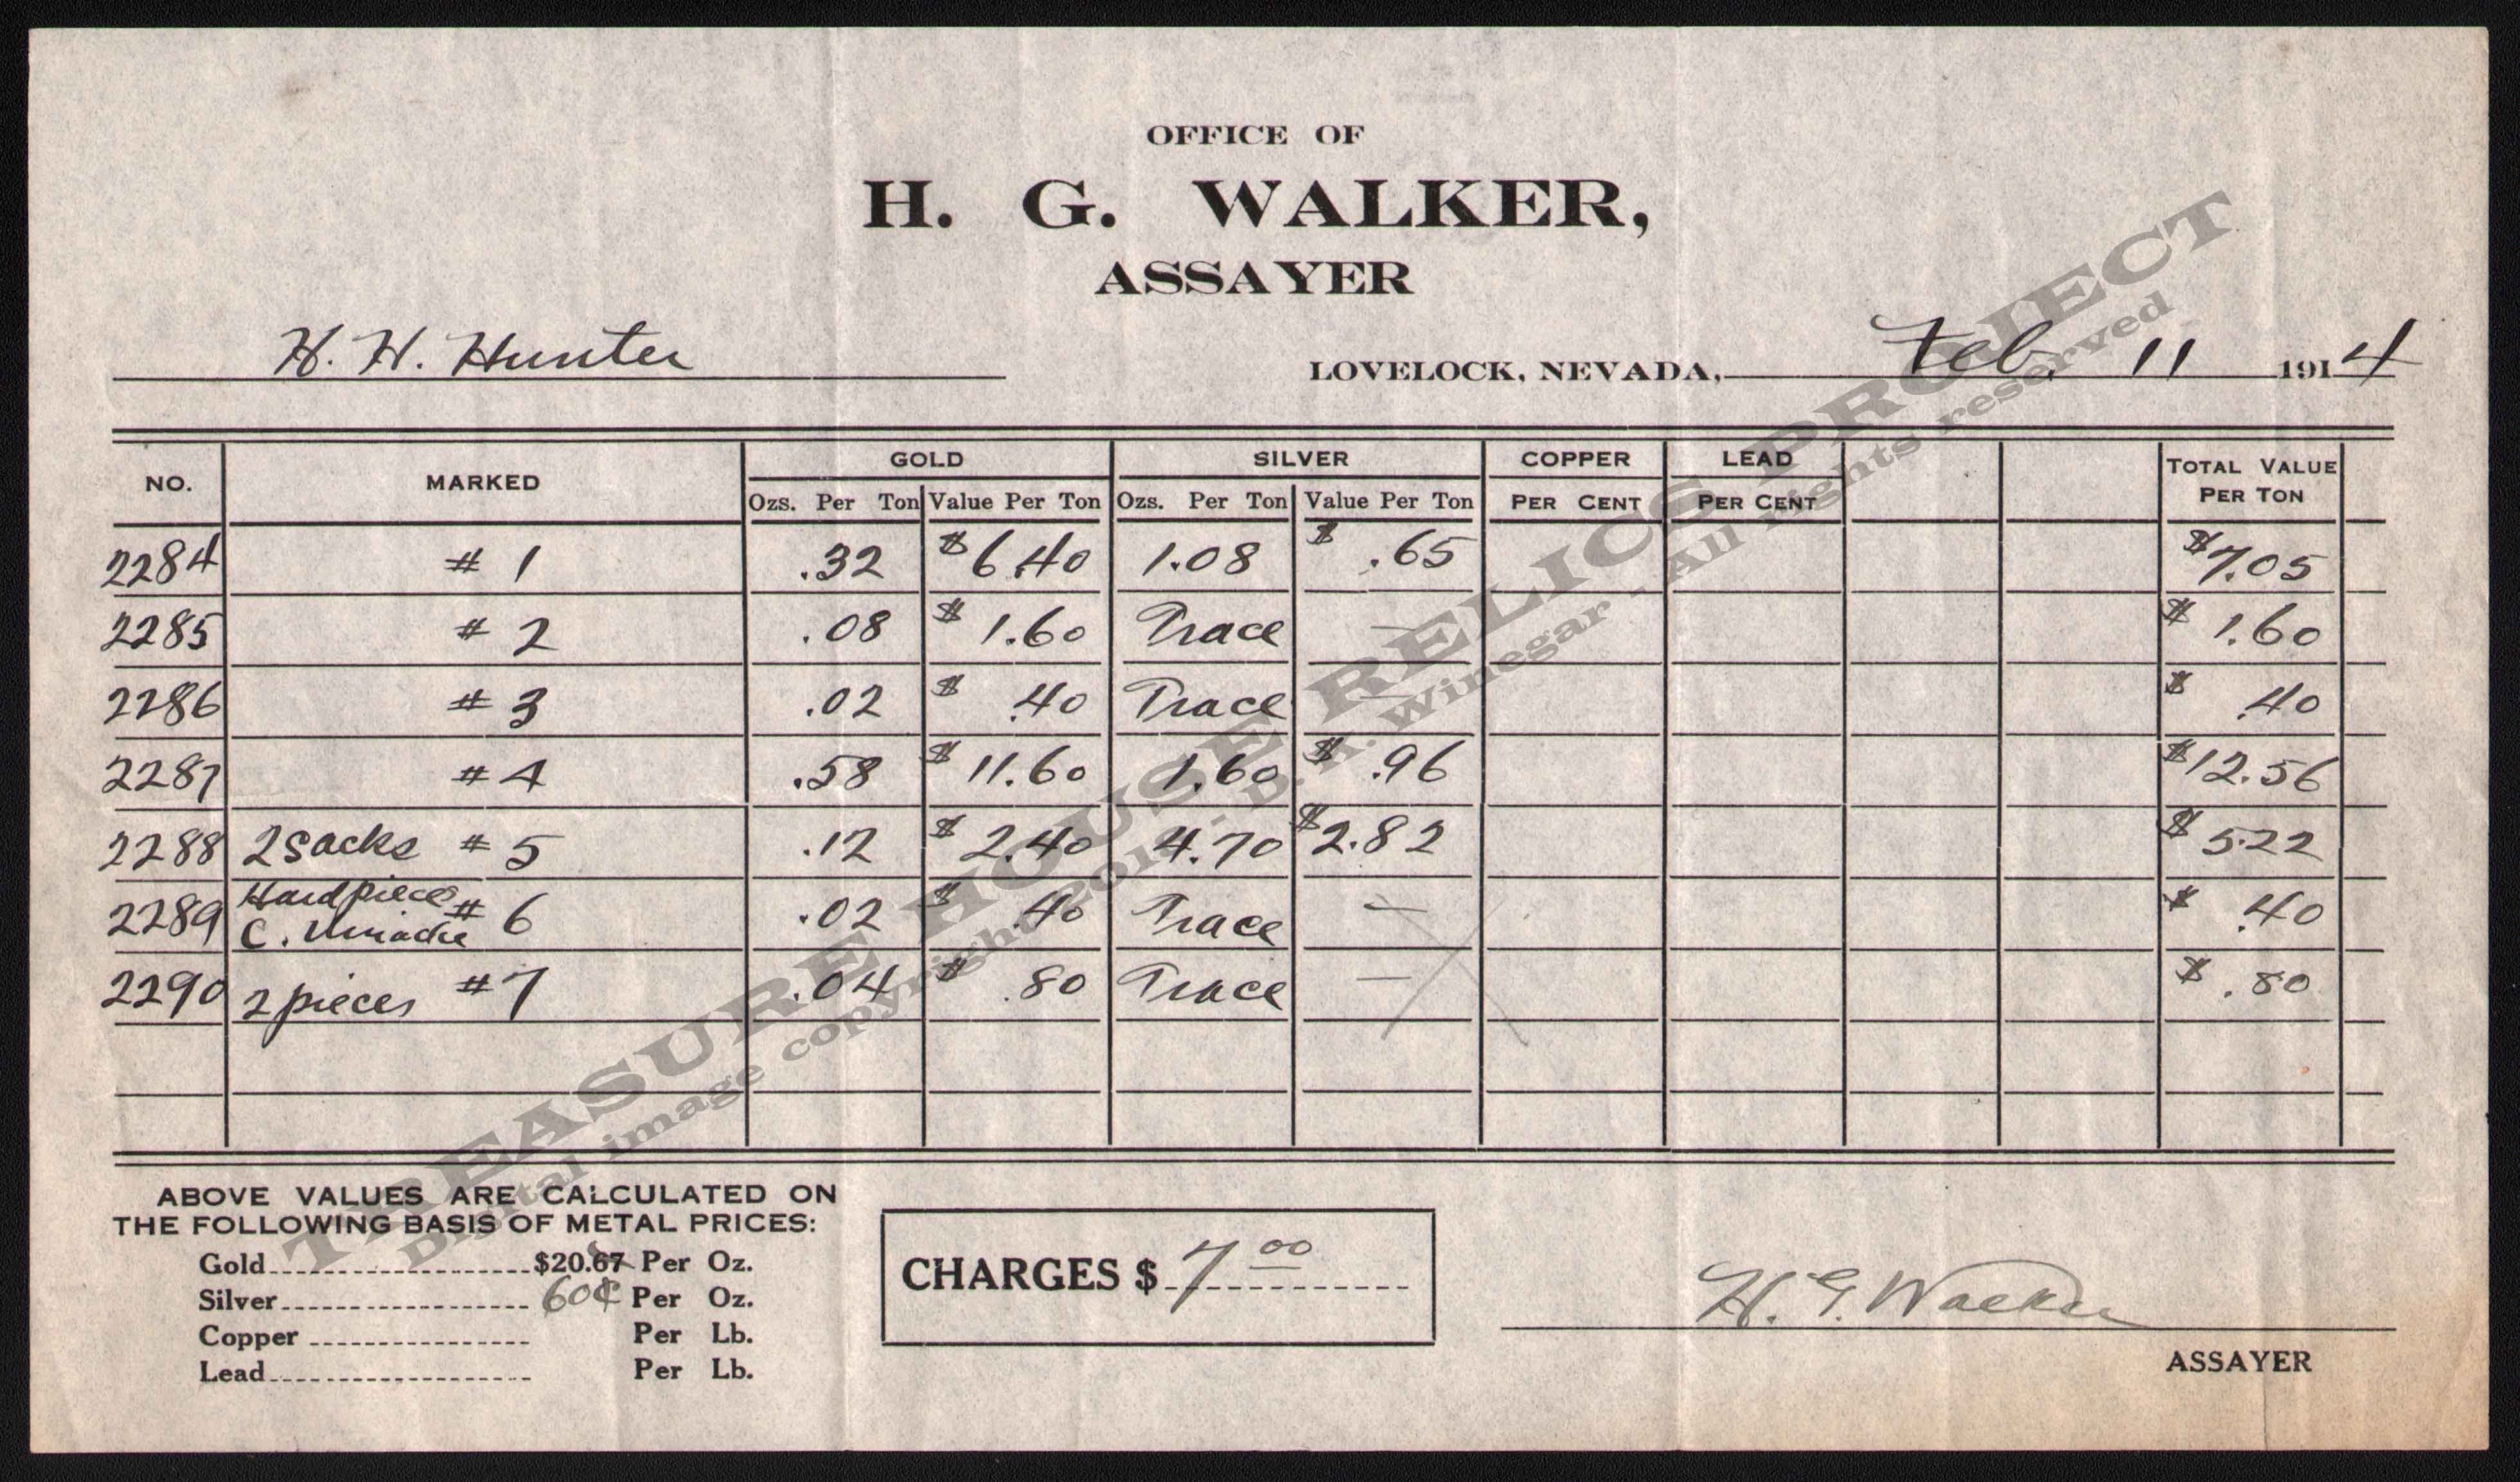 OFFICE OF
H. G. WALKER,
ASSAYER
H. H. Hunter LOVELOCK, NEVADA, Feb. 11 1914
NO. MARKED GOLD SILVER COPPER LEAD TOTAL VALUE PER TON
Ozs. Per Ton Value Per Ton Ozs. Per Ton Value Per Ton PER CENT PER CENT
2284 # 1 .32 $6.40 1.08 $ .65 $7.05
2285 # 2 .08 $ 1.60 Trace — $ 1.60
2286 # 3 .02 $ .40 Trace — $ .40
2287 # 4 .58 $ 11.60 1.60 $ .96 $12.56
2288 2 sacks # 5 .12 $ 2.40 4.70 $2.82 $ 5.22
2289 Hard piece C. # 6 .02 $ .40 Trace — $ .40
2290 2 pieces # 7 .04 $ .80 Trace — $ .80
ABOVE VALUES ARE CALCULATED ON
THE FOLLOWING BASIS OF METAL PRICES:
Gold $20.67 Per Oz.
Silver 60¢ Per Oz.
Copper Per Lb.
Lead Per Lb.
CHARGES $ 7 00
H. G. Walker
ASSAYER
TREASURE HOUSE RELICS PROJECT
Digital image copyright 2015 - D. A. Winegar - All rights reserved